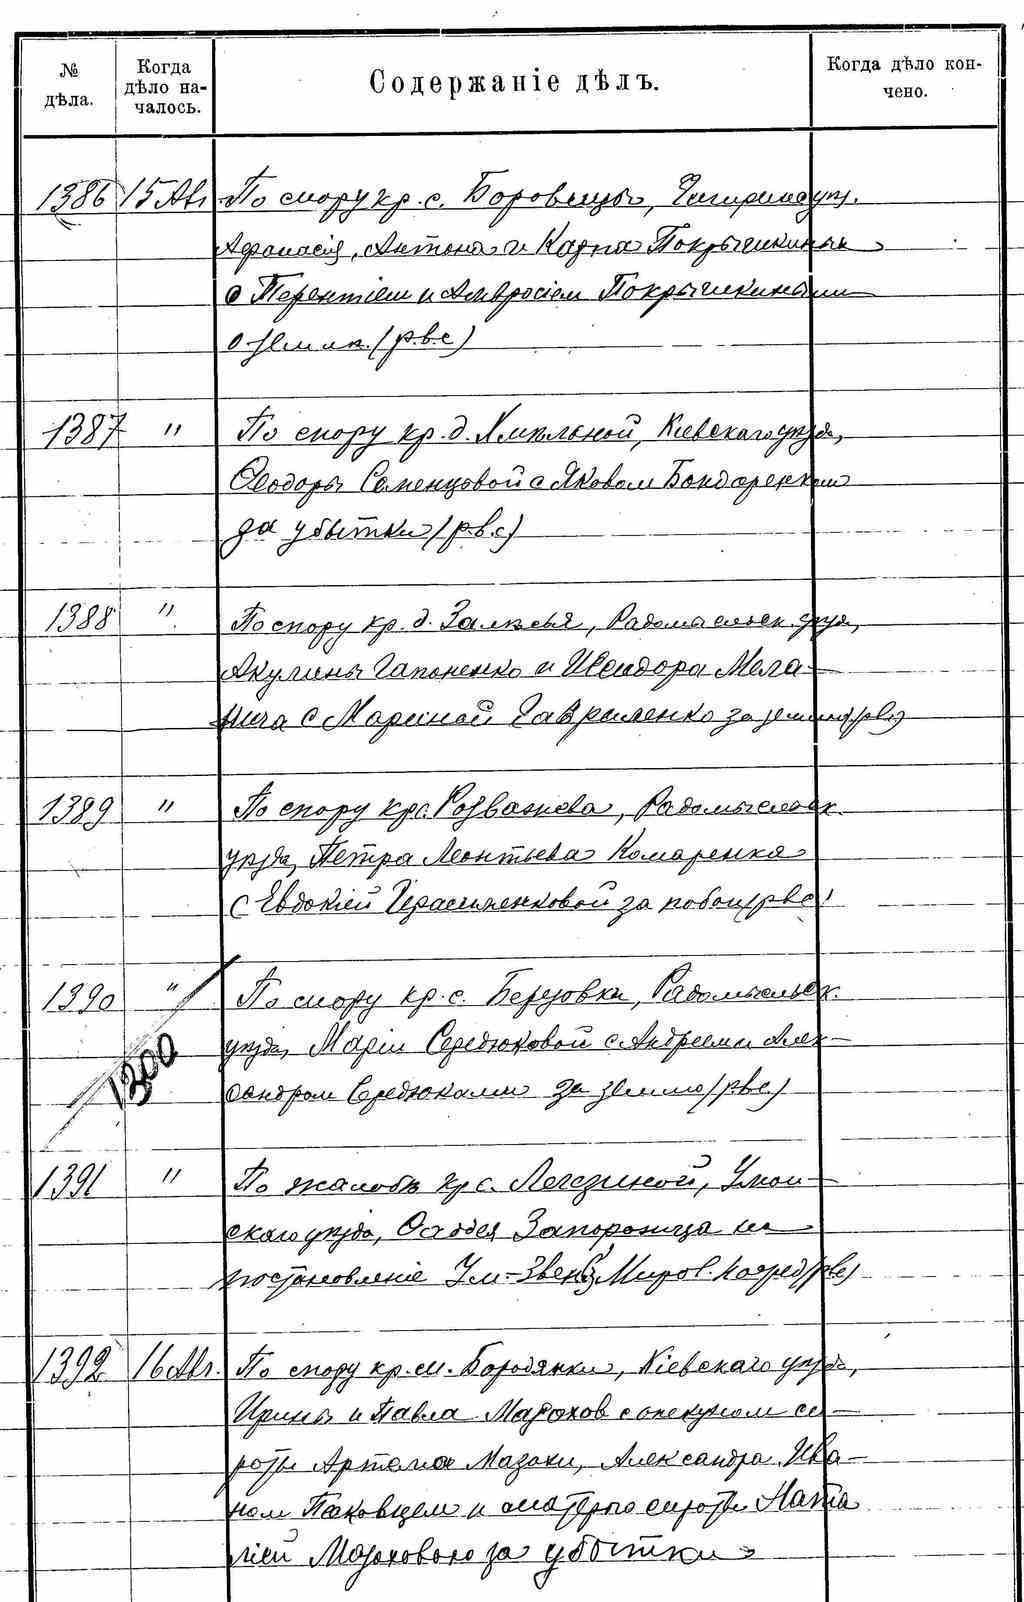 № дѣла.
Когда дѣло началось.
Содержаніе дѣлъ.
Когда дѣло кончено.
1386 15 Авг. По спору кр. с. Боровицы, Чигиринс. у.
Афанасія, Антона и Карпа Покрышкиных
с Терентіем и Амвросіем Покрышкиными
о земли. (р.в.с)
1387 " По спору кр. д. Хмѣльной, Кіевскаго уѣзда,
Ѳеодоры Саменцовой с Яковом Бондаренком
за убытки (р.в.с)
1388 " По спору кр. д. Залѣсья, Радомысльск. уѣзд,
Акулины Гапоненко и Исидора Мела-
нича с Мариной Гавриленко за землю (рвс)
1389 " По спору кр. с. Розважева, Радомысльск.
уѣзда, Петра Леонтьева Комаренка
с Евдокіей Герасименковой за побои (рвс)
1390 " По спору кр. с. Березовки, Радомысльск.
уѣзда, Маріи Середюковой с Андреем и Алек-
сандром Середюками за землю (рвс)
1300
1391 " По жалобѣ кр. с. Легезиной, Уман-
скаго уѣзда, Запорожца на
постановленіе Ум.-Звен. Миров. посред (рвс)
1392 16 Авг. По спору кр. м. Бородянки, Кіевскаго уѣзда,
Ирины и Павла Мазохов с опекуном си-
роты Артема Мазохи, Александра Ива-
ном Паковцем и матерью сироты Ната
ліей Мазоховою за убытки